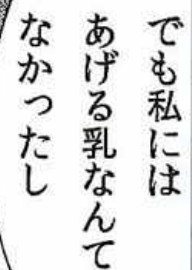 でも私には
あげる乳なんて
なかったし